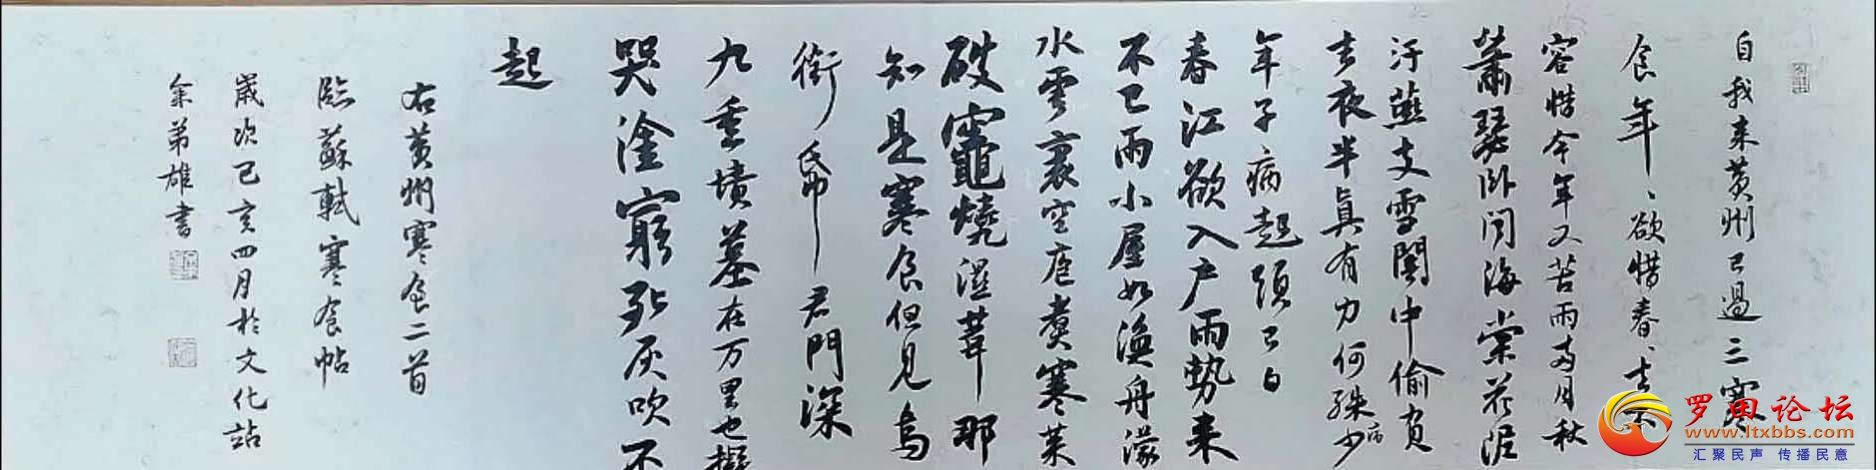 自我来黄州已過三寒
食年〻欲惜春〻去不
容惜今年又苦雨两月秋
蕭瑟卧闻海棠花泥
汙燕支雪闇中偷負
去夜半真有力何殊少
年子病起頭已白
春江欲入户雨勢来
不已雨小屋如漁舟濛
水雲裏空庖煮寒菜
破竈燒濕葦那
知是寒食但見烏
銜帋君門深
九重墳墓在万里也擬
哭塗窮死灰吹不
起
右黄州寒食二首
臨蘇軾寒食帖
歲次己亥四月於文化站
余弟雄書
罗田论坛
www.ltxbbs.com
汇聚民声 传播民意